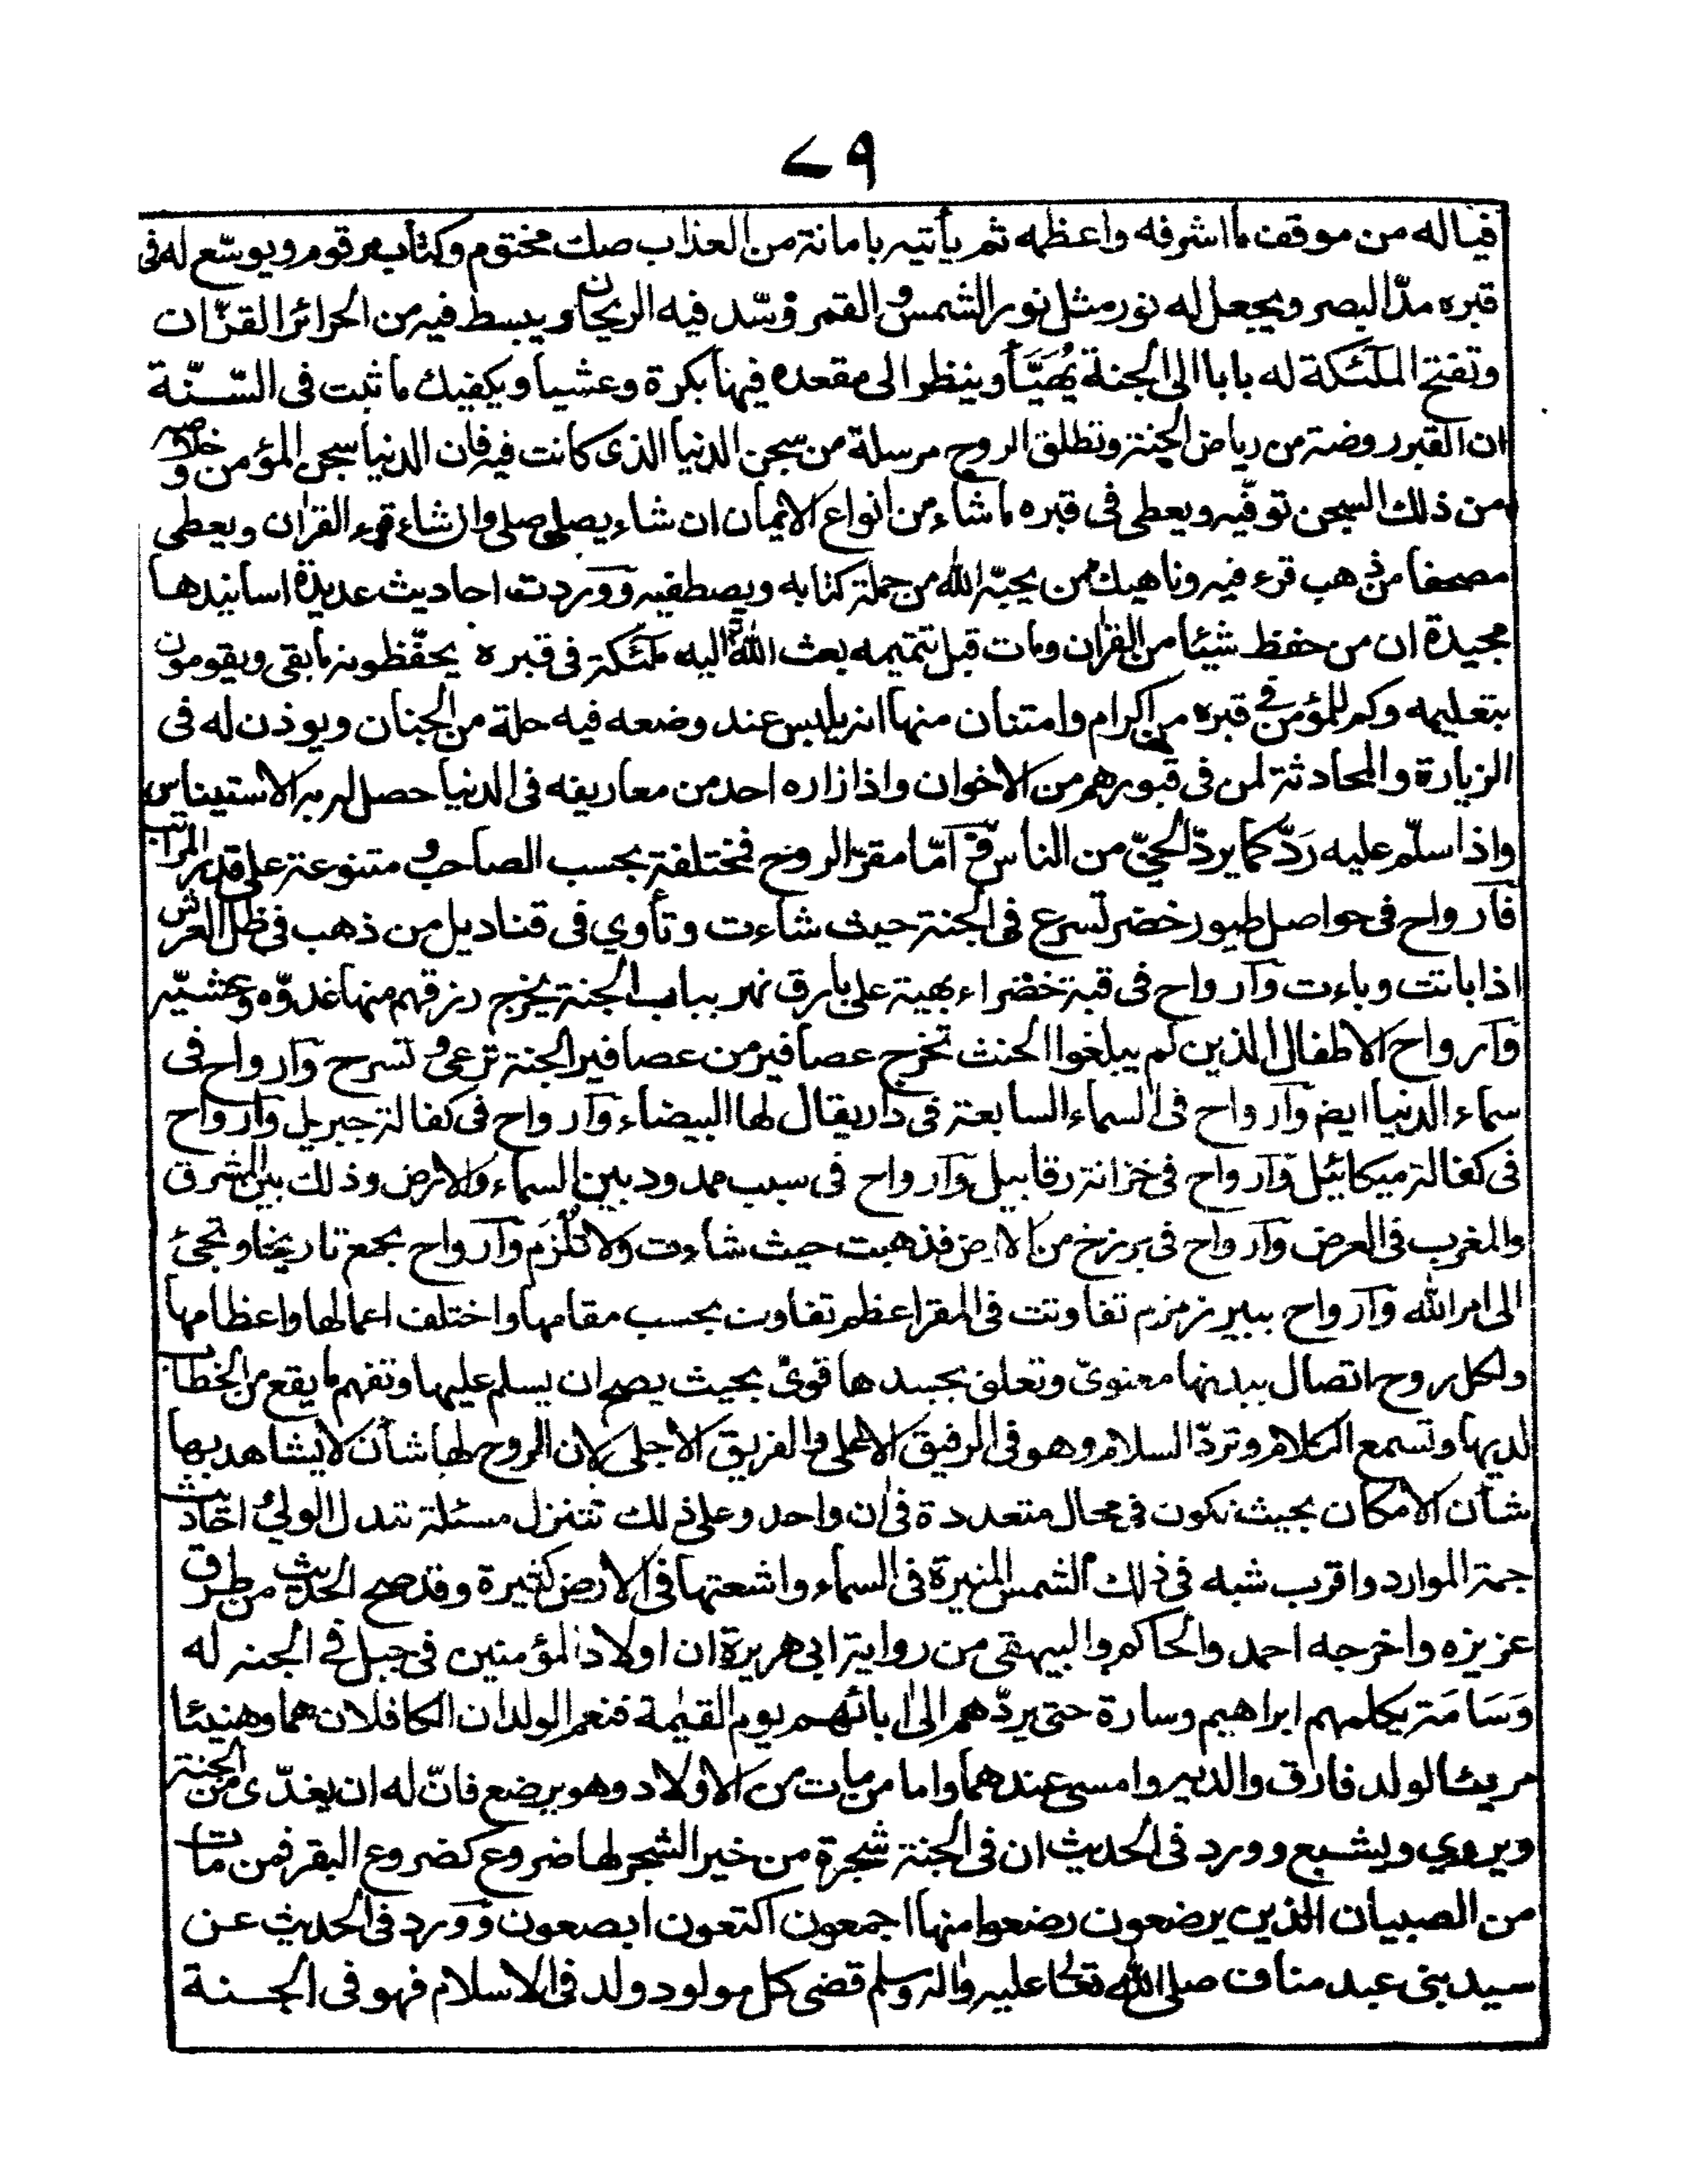 ٧٩
فياله من موقف ما اشرفه واعظمه ثم يأتيه بامانة من العذاب صك مختوم وكتاب مرقوم ويوسّع له فى
قبره مدّ البصر ويجعل له نور مثل نور الشمس والقمر وسّد فيه الريحان ويبسط فيه من الحرائر القزّان
وتفتح الملٓئكة له بابا الى الجنة يُهَيَّأ وينظر الى مقعده فيها بكرة وعشيا ويكفيك ما ثبت فى السّنّة
ان القبر روضة من رياض الجنة وتطلق الروح مرسلة من سجن الدنيا الذى كانت فيه فان الدنيا سجن المؤمن و خلاصه
من ذلك السجن توفّيه ويعطى فى قبره ما شاء من انواع الايمان ان شاء يصلى صلى وان شاء قرء القران ويعطى
مصحفا من ذهب قرء فيه وناهيك ممن يحبّه الله من حملة كتابه ويصطفيه ووردت احاديث عديدة اسانيدها
مجيدة ان من حفظ شيئا من القران ومات قبل تتميمه بعث الله اليه ملئكة فى قبره يحفّظونه ما بقى ويقومون
بتعليمه وكم للمؤمن فى قبره من اكرام وامتنان منها انه يلبس عند وضعه فيه حلة من الجنان ويوذن له فى
الزيارة والمحادثة لمن فى قبورهم من الاخوان واذا زاره احد من معاريفه فى الدنيا حصل له به الاستيناس
واذا سلّم عليه رَدّ كما يردّ الحىّ من الناس وآمّا مقرّ الروح فمختلفة بحسب الصاحب و متنوعة على قدر المراتب
فآرواح فى حواصل طيور خضر تسرع فى الجنة حيث شاءت وتأوي فى قناديل من ذهب فى ظل العرش
اذا باتت وباءت وآرواح فى قبة خضراء بهية على بارق نهر بباب الجنة يخرج رزقهم منها غدوّه وعشيّه
وآرواح الاطفال الذين لم يبلغوا الحنث تخرج عصافيز من عصافير الجنة ترعى و تسرح وآرواح فى
سماء الدنيا ايض وآرواح فى السماء السابعة فى دار يقال لها البيضاء وآرواح فى كفالة جبريل وآرواح
فى كفالة ميكائيل وآرواح فى خزانة رقابيل وآرواح فى سبب ممدود بين السماء والارض وذلك بين المشرق
والمغرب فى العرض وآرواح فى برزخ من الارض فذهبت حيث شاءت ولا تلزم وآرواح بجمع تاريخا وتجئ
الى امر الله وآرواح ببير زمزم تفاوتت فى المقر اعظم تفاوت بحسب مقامها واختلف اعمالها واعظامها
ولكل روح اتصال ببدنها معنوىّ وتعلق بجسدها قوىّ بحيث يصح ان يسلم عليها وتفهم ما يقع من الخطاب
لديها وتسمع الكلام وتردّ السلام وهو فى الرفيق الاعلى والفريق الاجلى لان الروح لها شأن لا يشاهد بها
شأن الامكان بحيث تكون فى محال متعددة فى ان واحد وعلى ذلك تتنزل مسئلة تبدل الولىّ احاديث
جمة الموارد واقرب شبه فى ذلك الشمس المنيرة فى السماء واشعتها فى الارض كثيرة وقد صح الحديث من طرق
عزيزه واخرجه احمد والحاكم والبيهقى من رواية ابى هريرة ان اولاد المؤمنين فى جبل فى الجنه له
وَسَامَة يكلمهم ابراهيم وسارة حتى يردّهم الى ابائهم يوم القيٰمة فنعم الولدان الكافلان هما وهنيئا
مريئا لولد فارق والديه وامسى عندهما واما من مات من الاولاد وهو يرضع فانّ له ان يغدّى من الجنة
ويروي ويشبع وورد فى الحديث ان فى الجنة شجرة من خير الشجر لها ضروع كضروع البقر فمن مات
من الصبيان الذين يرضعون رضعوا منها اجمعون اكتعون ابصعون وورد فى الحديث عن
سيد بنى عبد مناف صلى الله تعالى عليه واله وسلم قضى كل مولود ولد فى الاسلام فهو فى الجنة